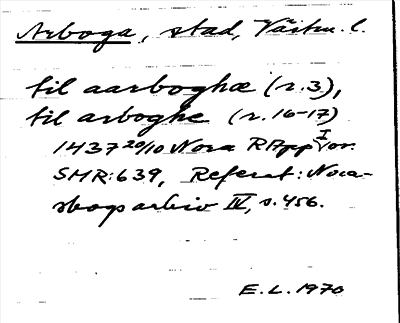 Arboga, stad, Västm. l.
til aarboghæ (r. 3),
til arboghe (r. 16-17)
1437 20/10 Nora RApp I or.
SMR: 639, Referat: Nora-
skogs arkiv IV, s. 456.
E. L. 1970